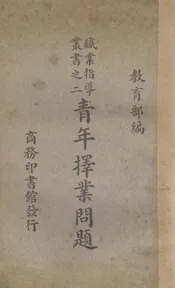 教育部編
職業指導
叢書之二
青年擇業問題
商務印書館發行